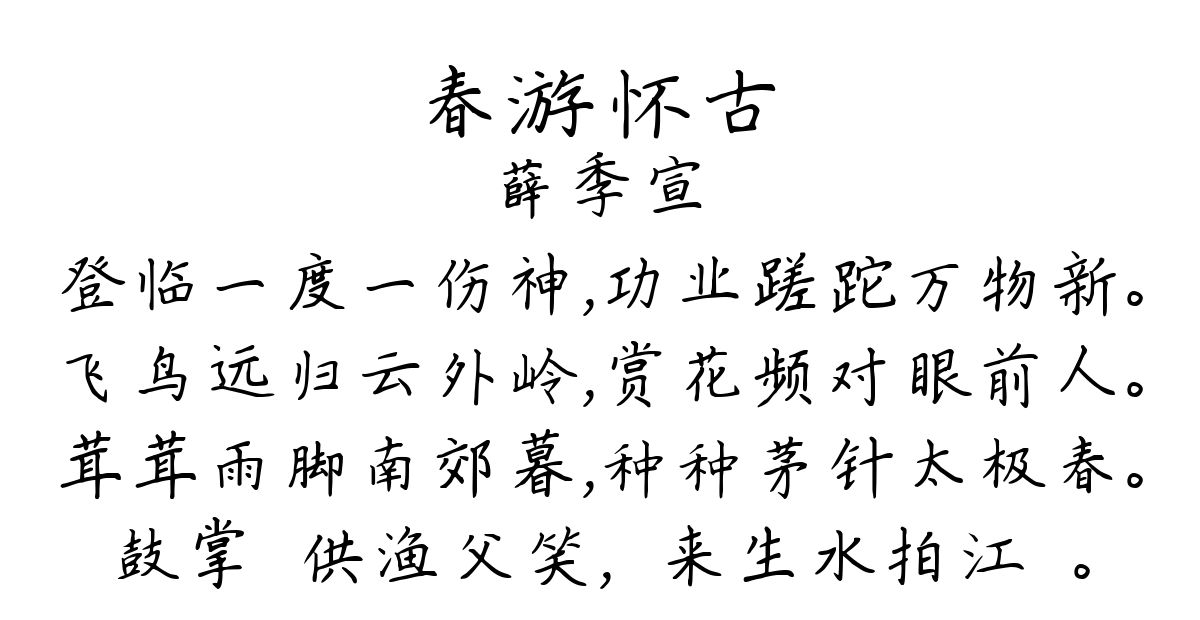 春游怀古
薛季宣
登临一度一伤神,功业蹉跎万物新。
飞鸟远归云外岭,赏花频对眼前人。
茸茸雨脚南郊暮,种种茅针太极春。
鼓掌 供渔父笑, 来生水拍江 。